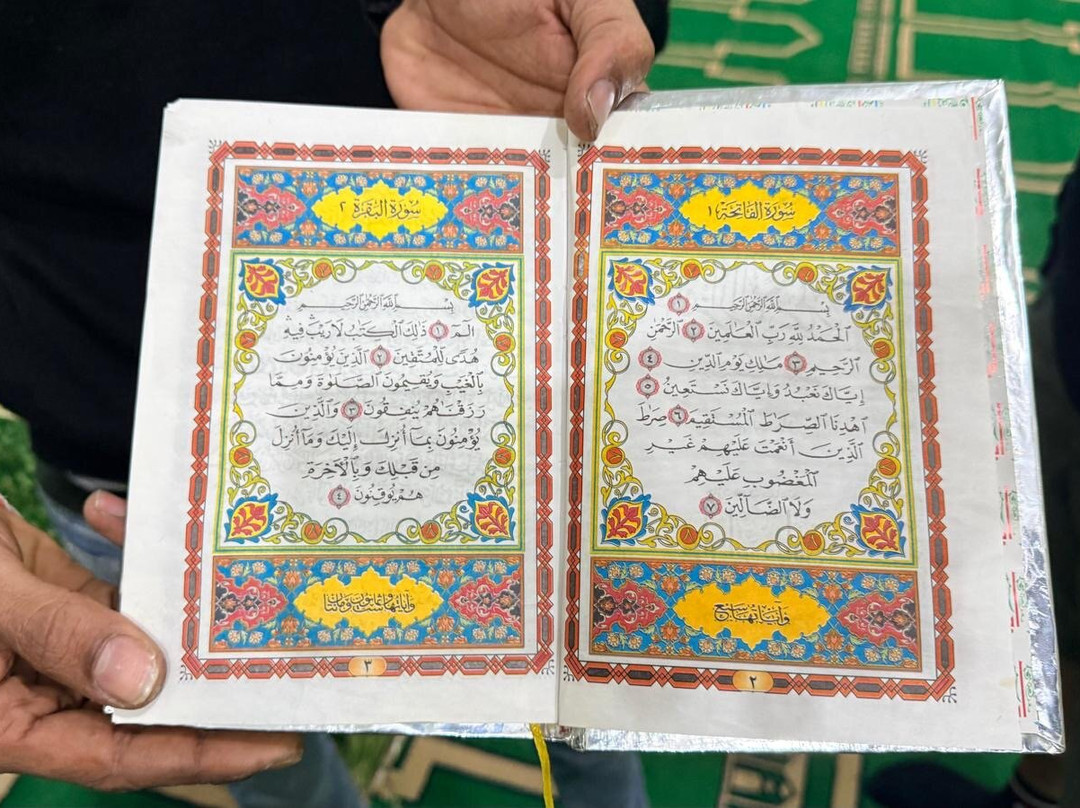 سُورَةُ الفَاتِحَةِ ١
بِسْمِ ٱللَّهِ ٱلرَّحْمَٰنِ ٱلرَّحِيمِ ١
ٱلْحَمْدُ لِلَّهِ رَبِّ ٱلْعَٰلَمِينَ ٢ ٱلرَّحْمَٰنِ
ٱلرَّحِيمِ ٣ مَٰلِكِ يَوْمِ ٱلدِّينِ ٤
إِيَّاكَ نَعْبُدُ وَإِيَّاكَ نَسْتَعِينُ ٥
ٱهْدِنَا ٱلصِّرَٰطَ ٱلْمُسْتَقِيمَ ٦ صِرَٰطَ
ٱلَّذِينَ أَنْعَمْتَ عَلَيْهِمْ غَيْرِ
ٱلْمَغْضُوبِ عَلَيْهِمْ
وَلَا ٱلضَّآلِّينَ ٧
وَآيَاتُهَا سَبْعٌ
٢
سُورَةُ البَقَرَةِ ٢
بِسْمِ ٱللَّهِ ٱلرَّحْمَٰنِ ٱلرَّحِيمِ
الٓمٓ ١ ذَٰلِكَ ٱلْكِتَٰبُ لَا رَيْبَ ۛ فِيهِ ۛ
هُدًى لِّلْمُتَّقِينَ ٢ ٱلَّذِينَ يُؤْمِنُونَ
بِٱلْغَيْبِ وَيُقِيمُونَ ٱلصَّلَوٰةَ وَمِمَّا
رَزَقْنَٰهُمْ يُنفِقُونَ ٣ وَٱلَّذِينَ
يُؤْمِنُونَ بِمَآ أُنزِلَ إِلَيْكَ وَمَآ أُنزِلَ
مِن قَبْلِكَ وَبِٱلْءَاخِرَةِ
هُمْ يُوقِنُونَ ٤
وَآيَاتُهَا سِتٌّ وَثَمَانُونَ وَمِائَتَانِ
٣